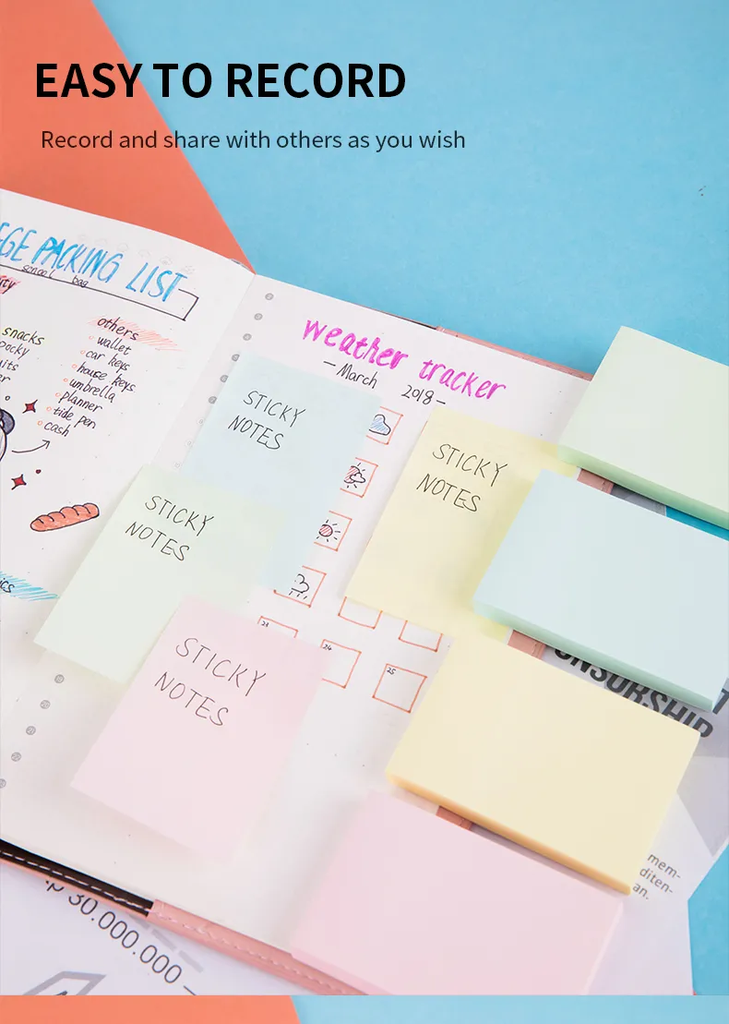 EASY TO RECORD
Record and share with others as you wish
EGE PACKING LIST
school bag
snacks
others
wallet
car keys
house keys
umbrella
planner
tide pen
cash
weather tracker
– March 2018 –
STICKY
NOTES
STICKY
NOTES
STICKY
NOTES
STICKY
NOTES
25
mem-
diten-
an.
30.000.000